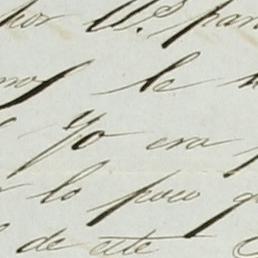 por V.S. par
le
Yo era
lo poco q
de este